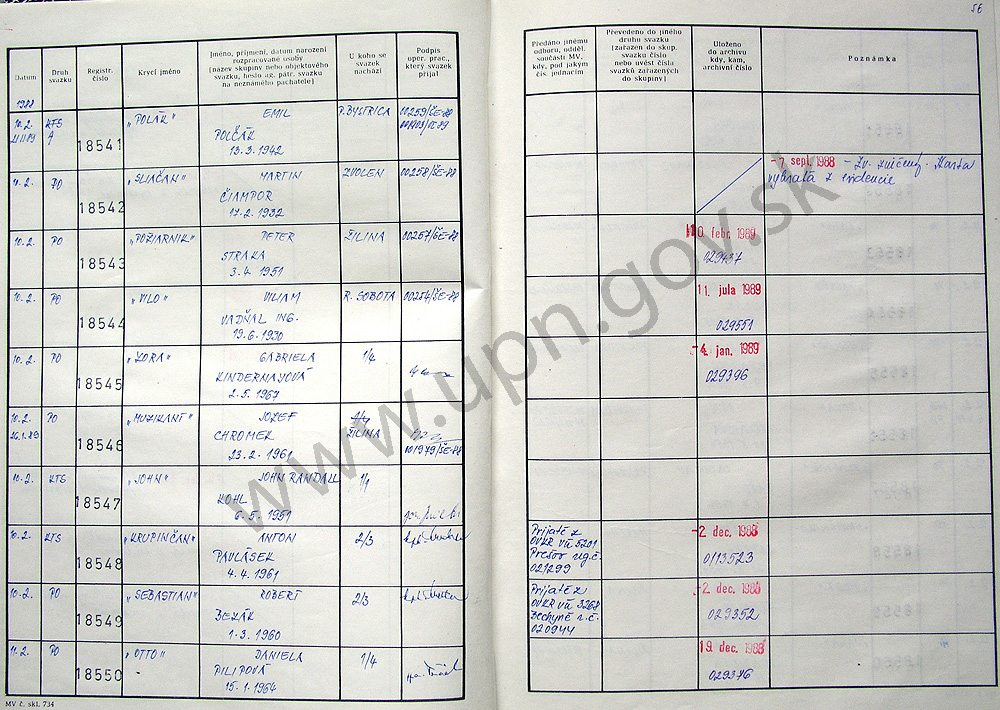 56
Datum
Druh svazku
Registr. číslo
Krycí jméno
Jméno, příjmení, datum narození
rozpracované osoby
[název skupiny nebo objektového
svazku, heslo ag. pátr. svazku
na neznámého pachatele]
U koho se
svazek
nachází
Podpis
oper. prac.,
který svazek
přijal
Předáno jinému
odboru, odděl.
součásti MV,
kdy, pod jakým
čís. jednacím
Převedeno do jiného
druhu svazku
[zařazen do skup.
svazku číslo
nebo uvést čísla
svazků zařazených
do skupiny]
Uloženo
do archivu
kdy, kam,
archivní číslo
Poznámka
1988
10.2. KTS 18541 „POLÁK" EMIL P.BYSTRICA 00259/ŠE-88
A
POLČÁK
13.3.1942
10.2. PO 18542 „SLIAČAN" MARTIN ZVOLEN 00258/ŠE-88
ČIAMPOR
17.2.1932
- 7. sept. 1988 - Zv. zničený. Karta
vybratá z evidencie
10.2. PO 18543 „POŽIARNIK" PETER ŽILINA 00257/ŠE-88
STRAKA
3.4.1951
10. febr. 1989
029437
10.2. PO 18544 „VILO" VILIAM R. SOBOTA 00254/ŠE-88
VADŇAL ING.
19.6.1930
11. júla 1989
029551
10.2. PO 18545 „LORA" GABRIELA 1/4
KINDERNAYOVÁ
2.5.1967
- 4. jan. 1989
029396
10.2. PO 18546 „MUZIKANT" JOZEF
26.1.89 CHROMEK ŽILINA
23.2.1961 001979/ŠE-88
10.2. KTS 18547 „JOHN" JOHN RANDALL 1/1
KOHL
6.5.1951
10.2. KTS 18548 „KRUPINČAN" ANTON 2/3
PAVLÁSEK
4.4.1961
Prijaté z
OVKR vú 5201
Prešov reg.č.
021299
- 2. dec. 1988
0113523
10.2. PO 18549 „SEBASTIAN" ROBERT 2/3
BEZÁK
1.3.1960
Prijaté z
OVKR vú 3268
Bechyně r.č.
020944
- 2. dec. 1988
029352
11.2. PO 18550 „OTTO" DANIELA 1/4
PILIPOVÁ
15.1.1964
19. dec. 1988
029376
MV č. skl. 734
www.upn.gov.sk